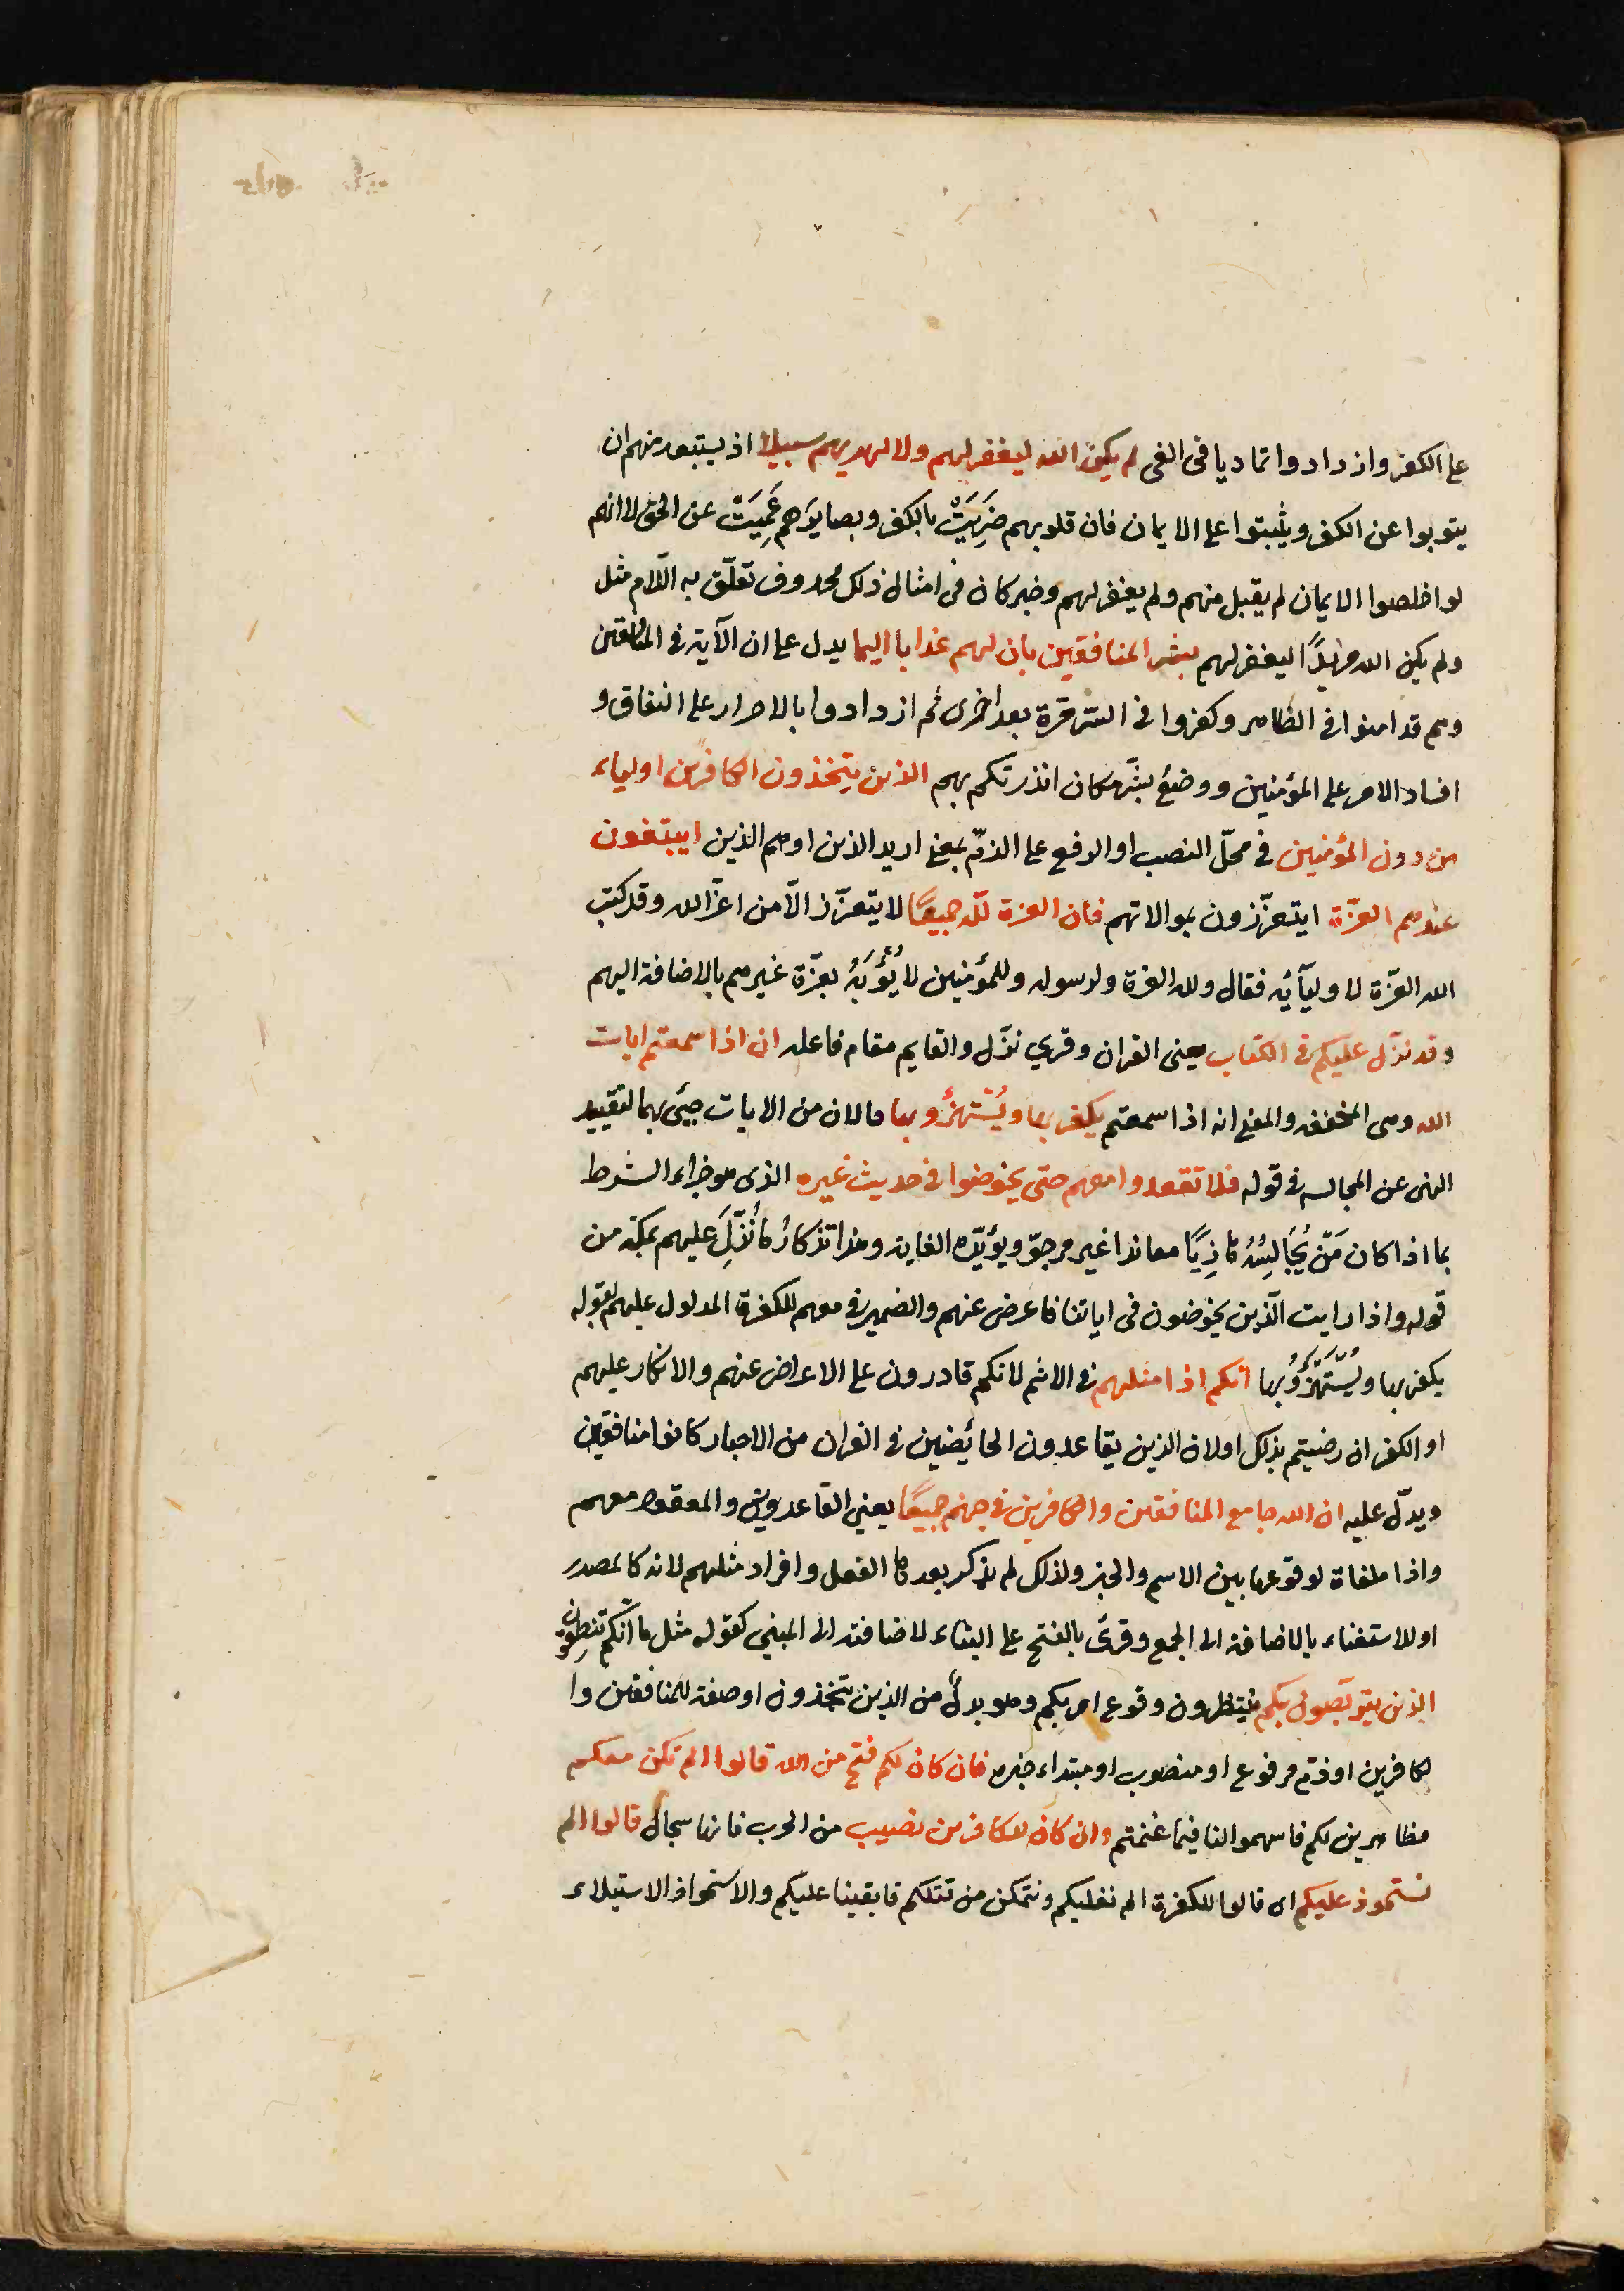 على الكفر وازدادوا تماديا فى الغى لم يكن الله ليغفر لهم ولا ليهديهم سبيلا اذ يستبعد منهم ان
يتوبوا عن الكفر ويثبتوا على الايمان فان قلوبهم ضَرِيَتْ بالكفر وبصايرَهم عَمِيَتْ عن الحق لا انهم
لو اخلصوا الايمان لم يقبل منهم ولم يغفر لهم وخبر كان فى امثال ذلك محذوف تعلّق به اللام مثل
ولم يكن الله مريدًا ليغفر لهم بشر المنافقين بان لهم عذابا اليما يدل على ان الآية فى المنافقين
وهم قد امنوا فى الظاهر وكفروا فى السّر مرة بعد اخرى ثم ازدادوا بالاصرار على النفاق و
افساد الامر على المؤمنين ووضع بشّر مكان انذر تهكم بهم الذين يتخذون الكافرين اولياء
من دون المؤمنين فى محلّ النصب او الرفع على الذمّ بمعنى اريد الذين او هم الذين ايبتغون
عندهم العزّة ايتعزّزون بموالاتهم فان العزة للّه جميعًا لا يتعزّز الّا من اعزّ الله وقد كتب
الله العزّة لاوليآئه فقال ولله العزة ولرسوله وللمؤمنين لا يُؤْبَهُ بعزّة غيرهم بالاضافة اليهم
وقد نزّل عليكم فى الكتاب يعنى القران وقرى نزّل والقايم مقام فاعله ان اذا سمعتم ايات
الله وهى المخففه والمعنى انه اذا سمعتم يكفر بها ويُسْتهزؤ بها حالان من الايات جيئ بهما لتقييد
النهى عن المجالسه فى قوله فلا تقعدوا معهم حتى يخوضوا فى حديث غيره الذى هو جزاء الشرط
بما اذا كان مَنْ يُجَالِسُهُ هَازِيًا معاندا غير مرجوّ ويؤيّده الغاية وهذا تذكارُ مَا نُزِّلَ عليهم بمكّة من
قوله واذا رايت الّذين يخوضون فى اياتنا فاعرض عنهم والضمير فى معهم للكفرة المدلول عليهم بقوله
يكفر بها ويُسْتَهْزَؤُ بها انكم اذا مثلهم فى الاثم لانكم قادرون على الاعراض عنهم والانكار عليهم
او الكفر ان رضيتم بذلك اولان الذين يقاعدون الخائضين فى القران من الاحبار كانوا منافقين
ويدلّ عليه ان الله جامع المنافقين والكافرين فى جهنم جميعًا يعنى القاعدين والمقعود معهم
واذا ملغاة لوقوعها بين الاسم والخبر ولذلك لم يذكر بعدها الفعل وافراد مثلهم لانه كالمصدر
او للاستغناء بالاضافة الى الجمع وقرئ بالفتح على البناء لاضافته الى المبنى كقوله مثل ما انّكم تنطقون
الذين يتربّصون بكم ينتظرون وقوع امر بكم وهو بدلٌ من الذين يتخذون او صفة للمنافقين وا
لكافرين او ذمّ مرفوع او منصوب او مبتداء خبره فان كان لكم فتح من الله قالوا الم نكن معكم
مظاهرين لكم فاسهموا لنا فيما غنمتم وان كان للكافرين نصيب من الحرب فانها سجال قالوا الم
نستحوذ عليكم اى قالوا للكفرة الم نغلبكم ونتمكن من قتلكم فابقينا عليكم والاستحواذ الاستيلاء